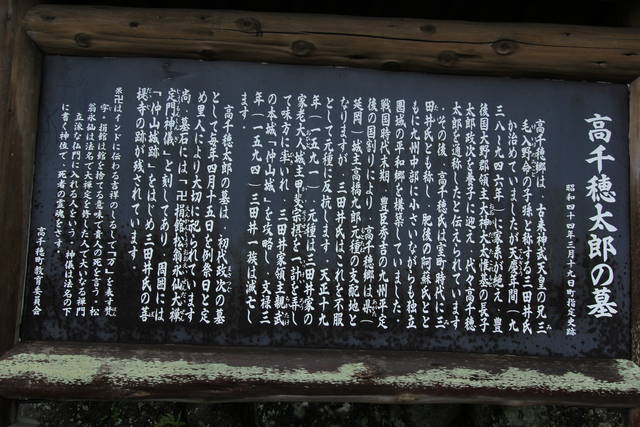 高千穂太郎の墓
昭和四十四年三月十九日町指定史跡
高千穂郷は、古来神武天皇の兄三
毛入野命の子孫と称する三田井氏
が治めていましたが天慶年間(九
三八〜九四六年)、家系が絶え、豊
後国大野郡領主大神大太惟基の長子
太郎政次を養子に迎え、代々高千穂
太郎を通称としたと伝えられています。
その後、高千穂氏は室町時代に三
田井氏とも称し、肥後の阿蘇氏とと
もに九州中部に小さいながらも独立
圏域の平和郷を構築していました。
戦国時代末期、豊臣秀吉の九州平定
後の国割りにより、高千穂郷は県(
延岡)城主高橋九郎元種の支配地と
なりますが、三田井氏はこれを不服
として元種に反抗します。天正十九
年(一五九一)、元種は三田井家の
家老大人城主甲斐宗摂を、計を弄し
て味方に率い、三田井家領主親武
の本城「仲山城」を攻略し、文禄三
年(一五九四)三田井一族は滅亡し
ます。
高千穂太郎の墓は、初代政次の墓
として毎年四月十五日を例祭日と定
め里人により大切に祀られています。
尚、墓石には「卍捐館松翁永仙大禅
定門神儀」と刻してあり、周囲には
「仲山城跡」をはじめ三田井氏の菩
提寺の跡が残されています。
※卍はインドに伝わる吉祥のしるしで「万」を表す梵
字・捐館は館を捨てる意味で貴人の死を言う・松
翁永仙は法名で大禅定を修した人、大いなる禅門
立派な仏門に入れる人をいう・神儀は法名の下
に書く神位で、死者の霊魂をさす。
高千穂町教育委員会